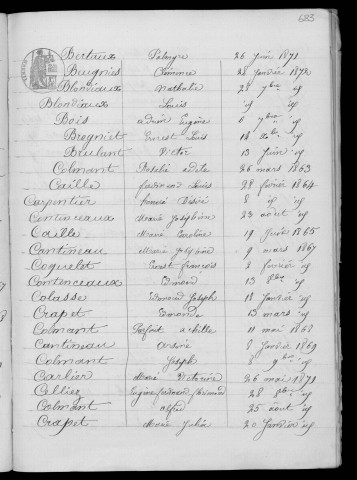 683
Bertaux Palmyre 26 Juin 1871
Bugnies Clémence 2 Janvier 1872
Blondiaux Nathalie 28 7bre id
Blondiaux Louis id id
Bois Adrien Eugène 6 7bre id
Brogniet Ernest Louis 18 Xbre id
Brulant Victor 13 Juin id
Colmant Rosalie 26 mars 1863
Caille Ferdinand Louis 28 février 1864
Carpentier Désiré 8 id id
Contenceaux Marie Joséphine 23 août id
Caille Marie Caroline 19 Juin 1865
Cantineau Marie Joséphine 9 mars 1867
Coquelet Ernest François 2 février id
Contenceaux 13 8bre id
Colasse Edmond Joseph 18 Janvier id
Crapet 13 mars id
Colmant Parfait Achille 11 mai 1868
Cantineau Arsène 8 Janvier 1869
Colmant Joseph 8 9bre id
Carlier Marie Victorine 26 mai 1871
Cellier Eugène Ferdinand 28 8bre id
Colmant Alfred 25 août id
Crapet Marie Julia 20 Janvier id